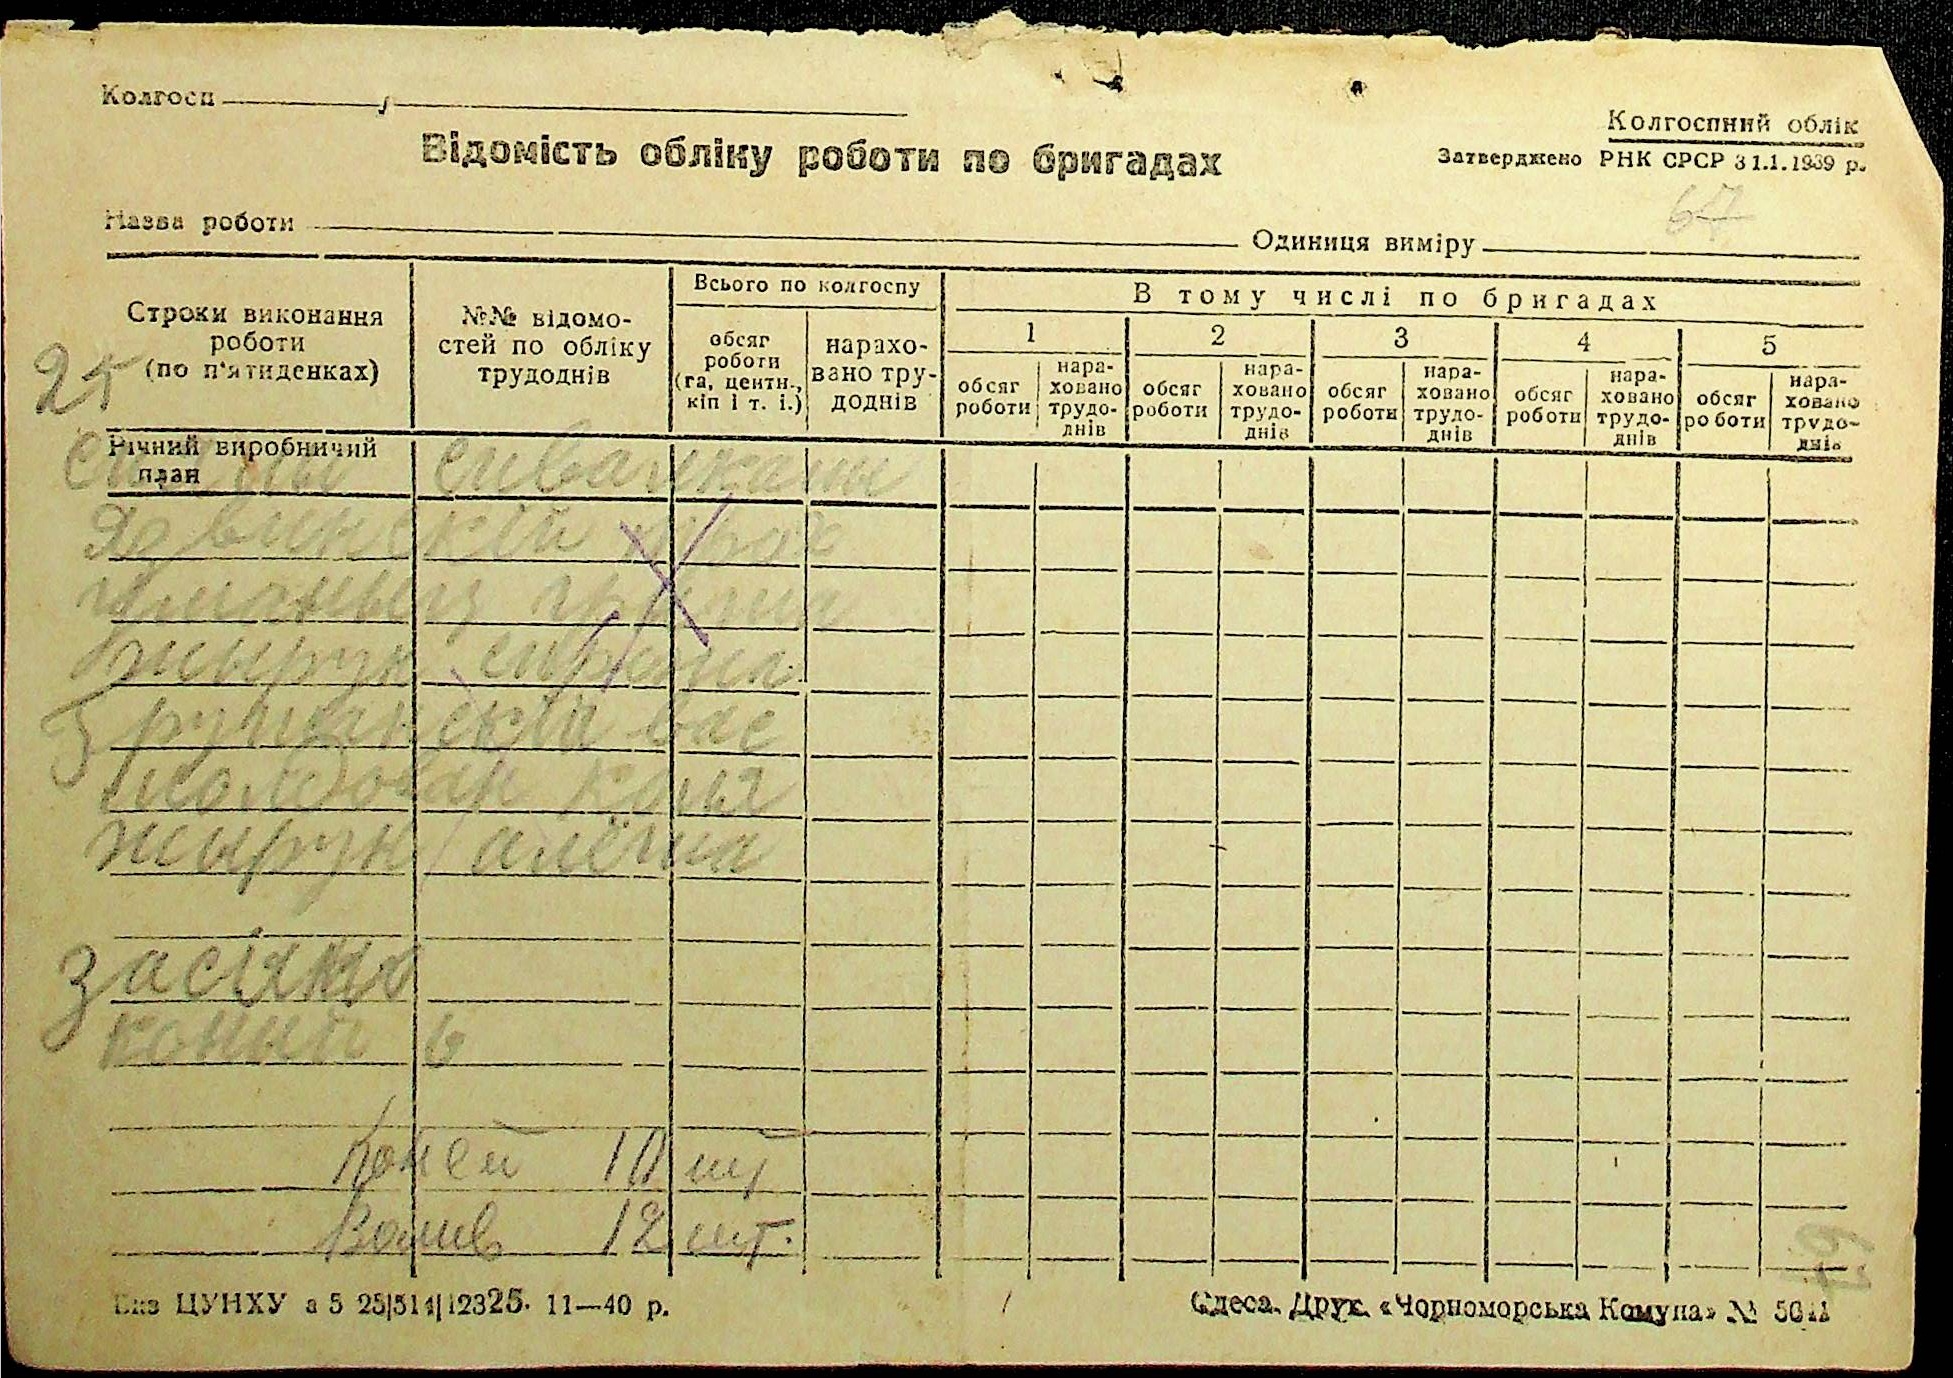 Колгосп
Колгоспний облік
Відомість обліку роботи по бригадах
Затверджено РНК СРСР 31.1.1939 р.
67
Назва роботи
Одиниця виміру
Строки виконання роботи (по п'ятиденках)
№№ відомостей по обліку трудоднів
Всього по колгоспу
обсяг роботи (га, центн., кіп і т. і.)
нараховано трудоднів
В тому числі по бригадах
1 2 3 4 5
обсяг роботи
нараховано трудоднів
обсяг роботи
нараховано трудоднів
обсяг роботи
нараховано трудоднів
обсяг роботи
нараховано трудоднів
обсяг роботи
нараховано трудоднів
25
Річний виробничий план
жырун
вас
молдован коля
жырун алёша
конный 6
Коней 10 шт
Волив 12 шт.
ЦУНХУ а 5 25|514|12325. 11—40 р.
Одеса. Друк. «Чорноморська Комуна» №